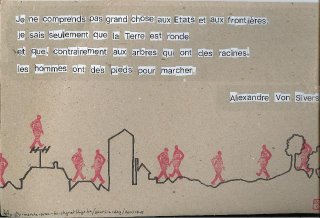 Je ne comprends pas grand chose aux Etats et aux frontières.
je sais seulement que la Terre est ronde
et que, contrairement aux arbres qui ont des racines,
les hommes ont des pieds pour marcher.
Alexandre Von Sivers